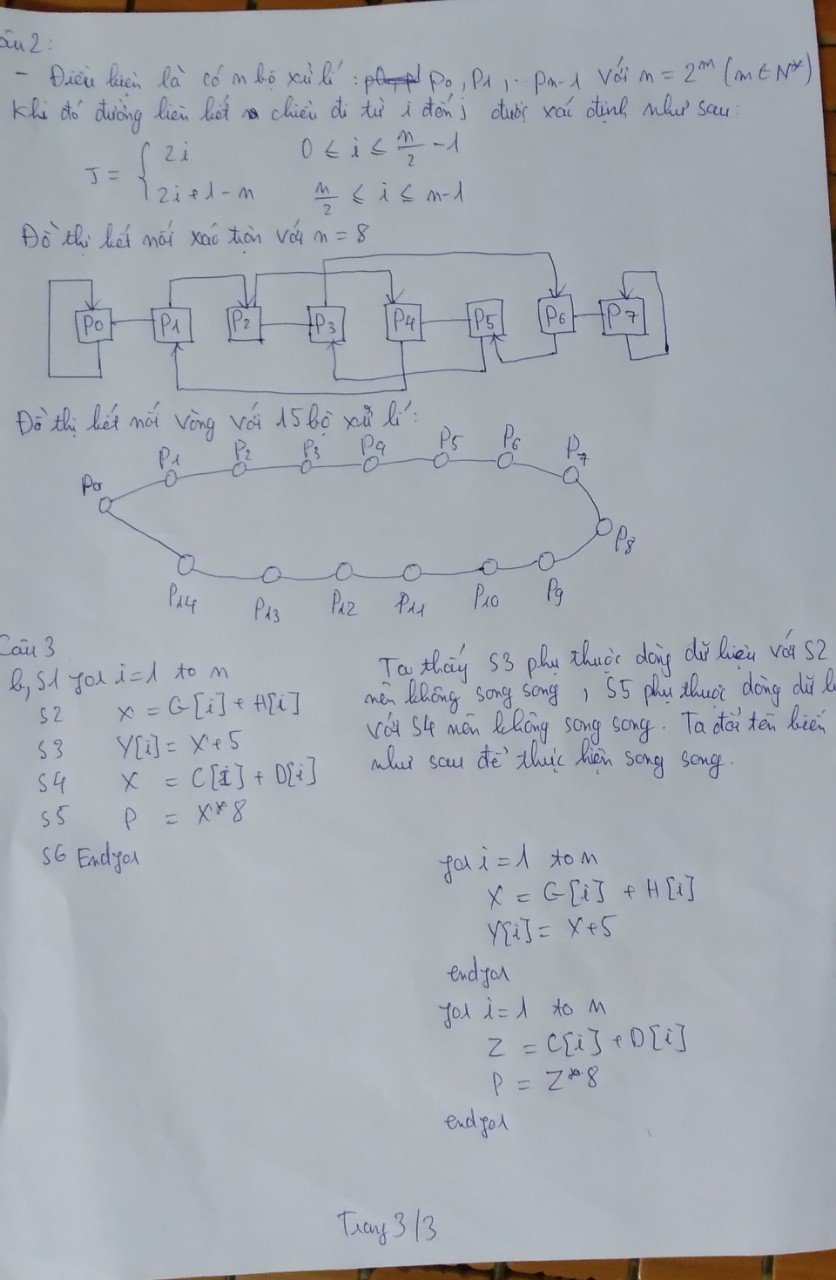 Câu 2:
- Điều kiện là có n bộ xử lí: P0, P1, .. Pn-1 với n = 2^m (m ∈ N*)
Khi đó đường liên kết chiều đi từ i đến j được xác định như sau:
J = { 2i 0 ≤ i ≤ n/2 - 1
2i + 1 - n n/2 ≤ i ≤ n-1
Đồ thị kết nối xáo trộn với n = 8
P0 P1 P2 P3 P4 P5 P6 P7
Đồ thị kết nối vòng với 15 bộ xử lí:
P0 P1 P2 P3 P4 P5 P6 P7
P8
P14 P13 P12 P11 P10 P9
Câu 3
b, S1 for i=1 to n
S2 X = G[i] + H[i]
S3 Y[i] = X+5
S4 X = C[i] + D[i]
S5 P = X*8
S6 Endfor
Ta thấy S3 phụ thuộc dòng dữ liệu với S2
nên không song song, S5 phụ thuộc dòng dữ l
với S4 nên không song song. Ta đổi tên biến
như sau để thực hiện song song.
for i=1 to n
X = G[i] + H[i]
Y[i] = X+5
endfor
for i=1 to n
Z = C[i] + D[i]
P = Z*8
endfor
Trang 3/3